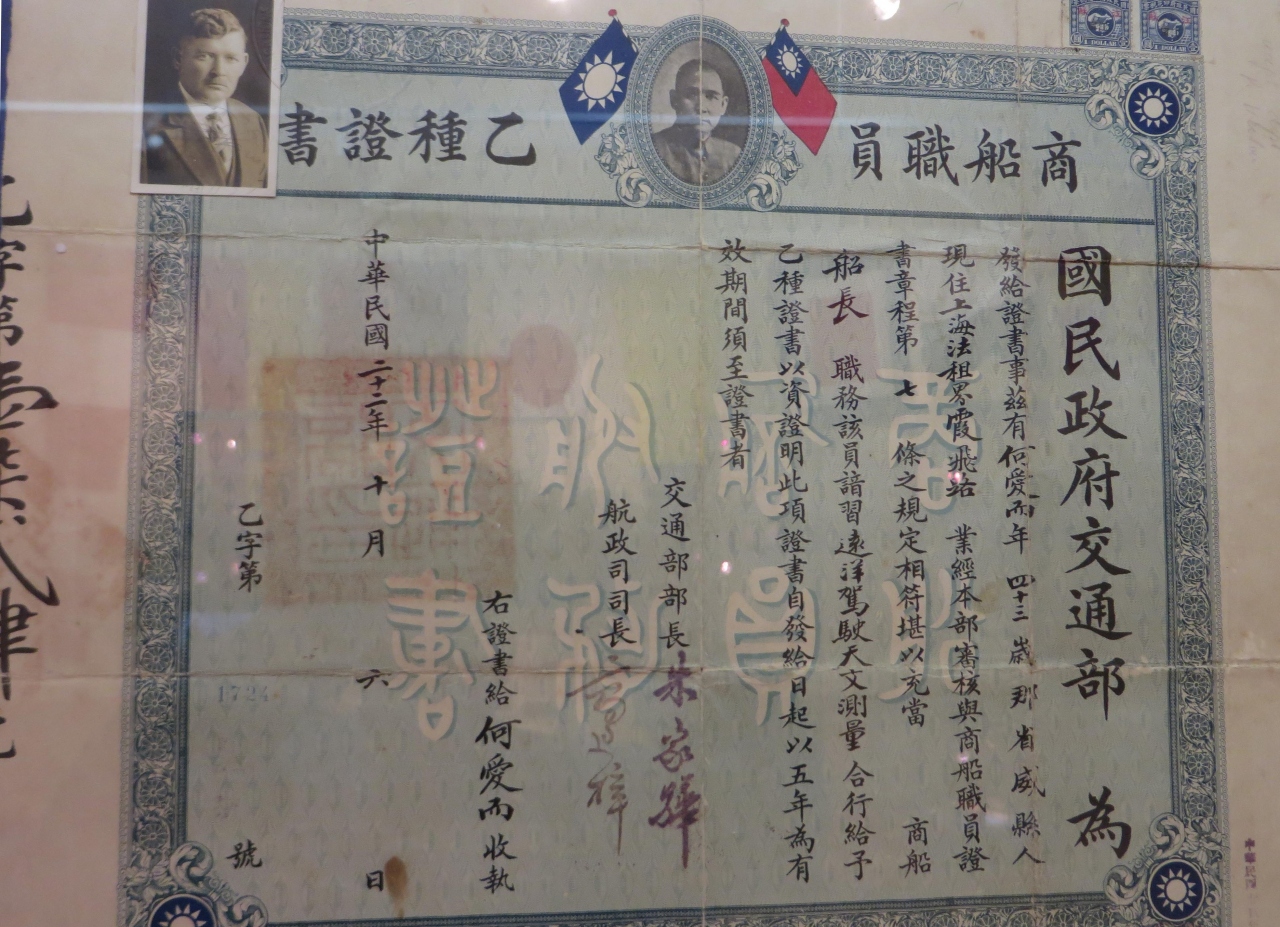 商船職員乙種證書
國民政府交通部 為
發給證書事茲有何愛而年 四十三 歲 那 省 威 縣人
現住上海法租界霞飛路 業經本部審核與商船職員證
書章程第 七 條之規定相符堪以充當 商船
船長 職務該員諳習遠洋駕駛天文測量 合行給予
乙種證書以資證明此項證書自發給日起以五年為有
效期間須至證書者
交通部部長朱家驊
航政司司長
右證書給何愛而收執
中華民國二十二年 十 月 六 日
乙字第 號
1724
商船職員乙種證書
1 DOLLAR
1 DOLLAR
中華民國